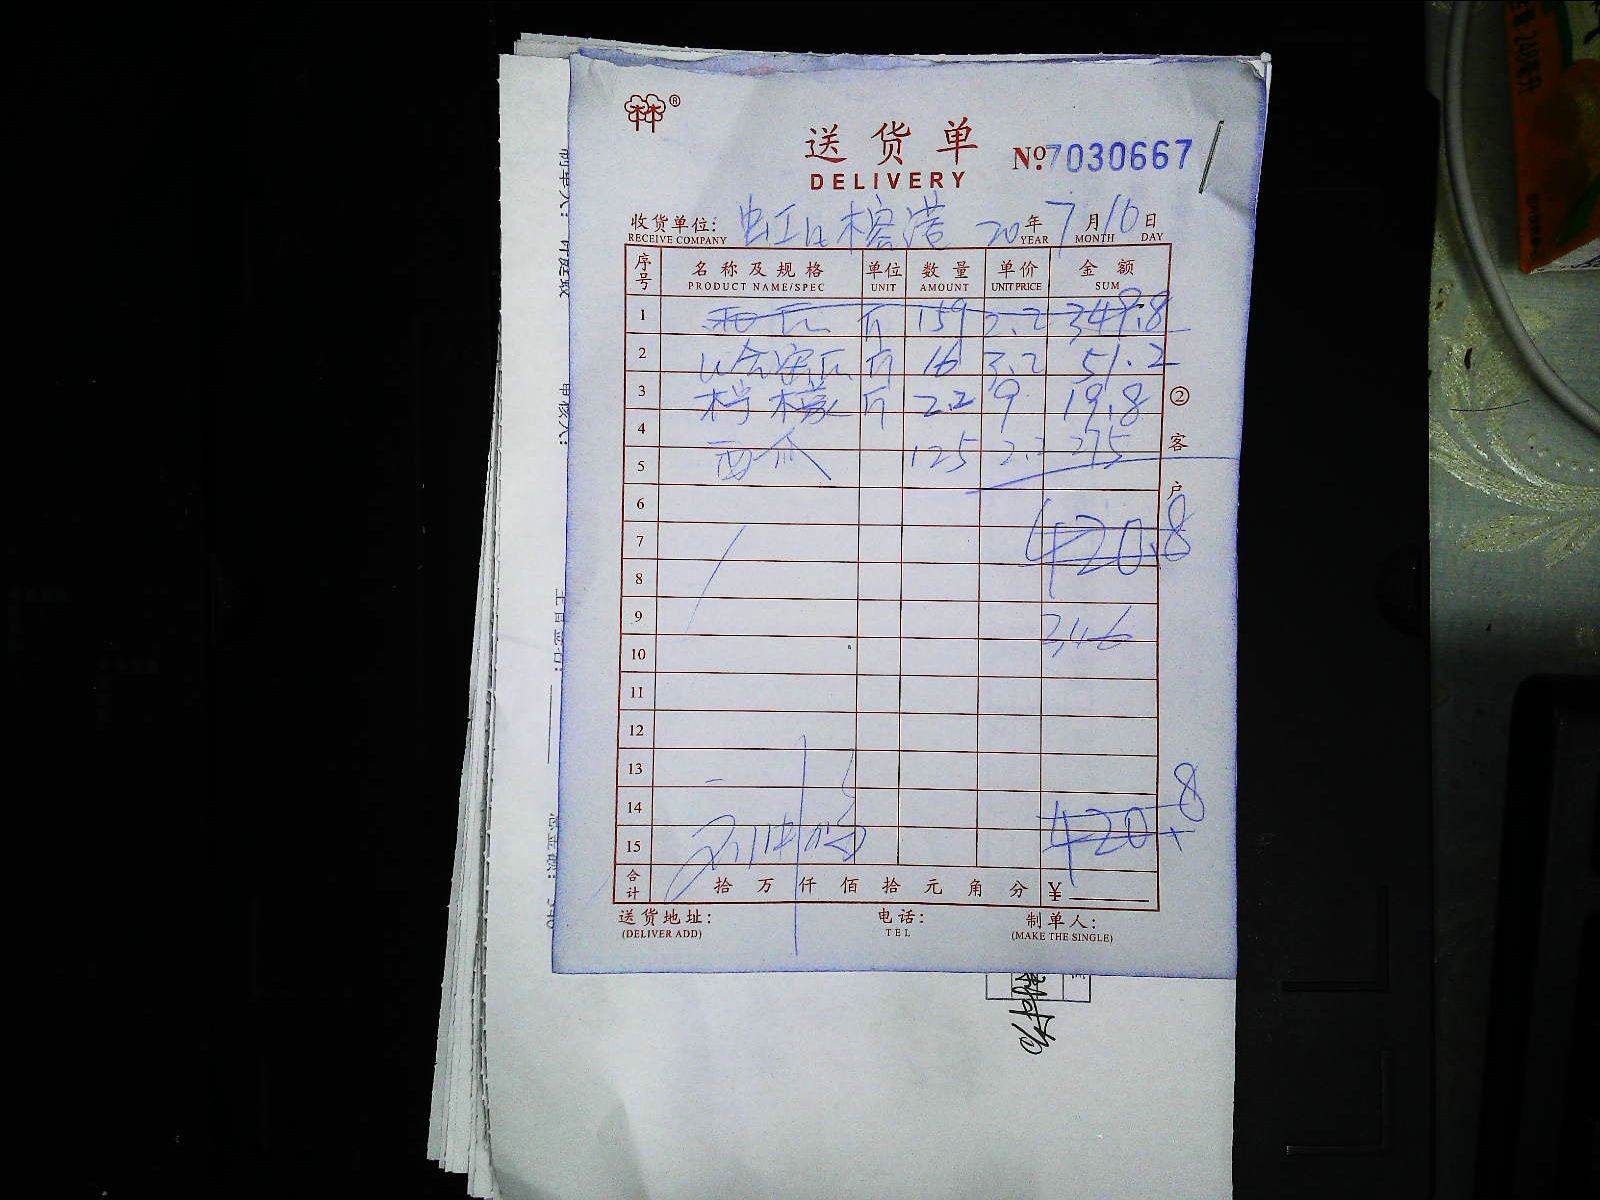 送货单
DELIVERY
№.7030667
收货单位: 虹口榕港 20年7月10日
RECEIVE COMPANY YEAR MONTH DAY
序号 名称及规格 单位 数量 单价 金额
PRODUCT NAME/SPEC UNIT AMOUNT UNIT PRICE SUM
1 西瓜 斤 159 2.2 349.8
2 哈密瓜 斤 16 3.2 51.2
3 柠檬 斤 2.2 9 19.8
4
西瓜 125 2.2 275
5
6
420.8
7
8
9
10
11
12
13
14
420.8
15
合计 拾 万 仟 佰 拾 元 角 分 ¥
送货地址: 电话: 制单人:
(DELIVER ADD) TEL (MAKE THE SINGLE)
②客户